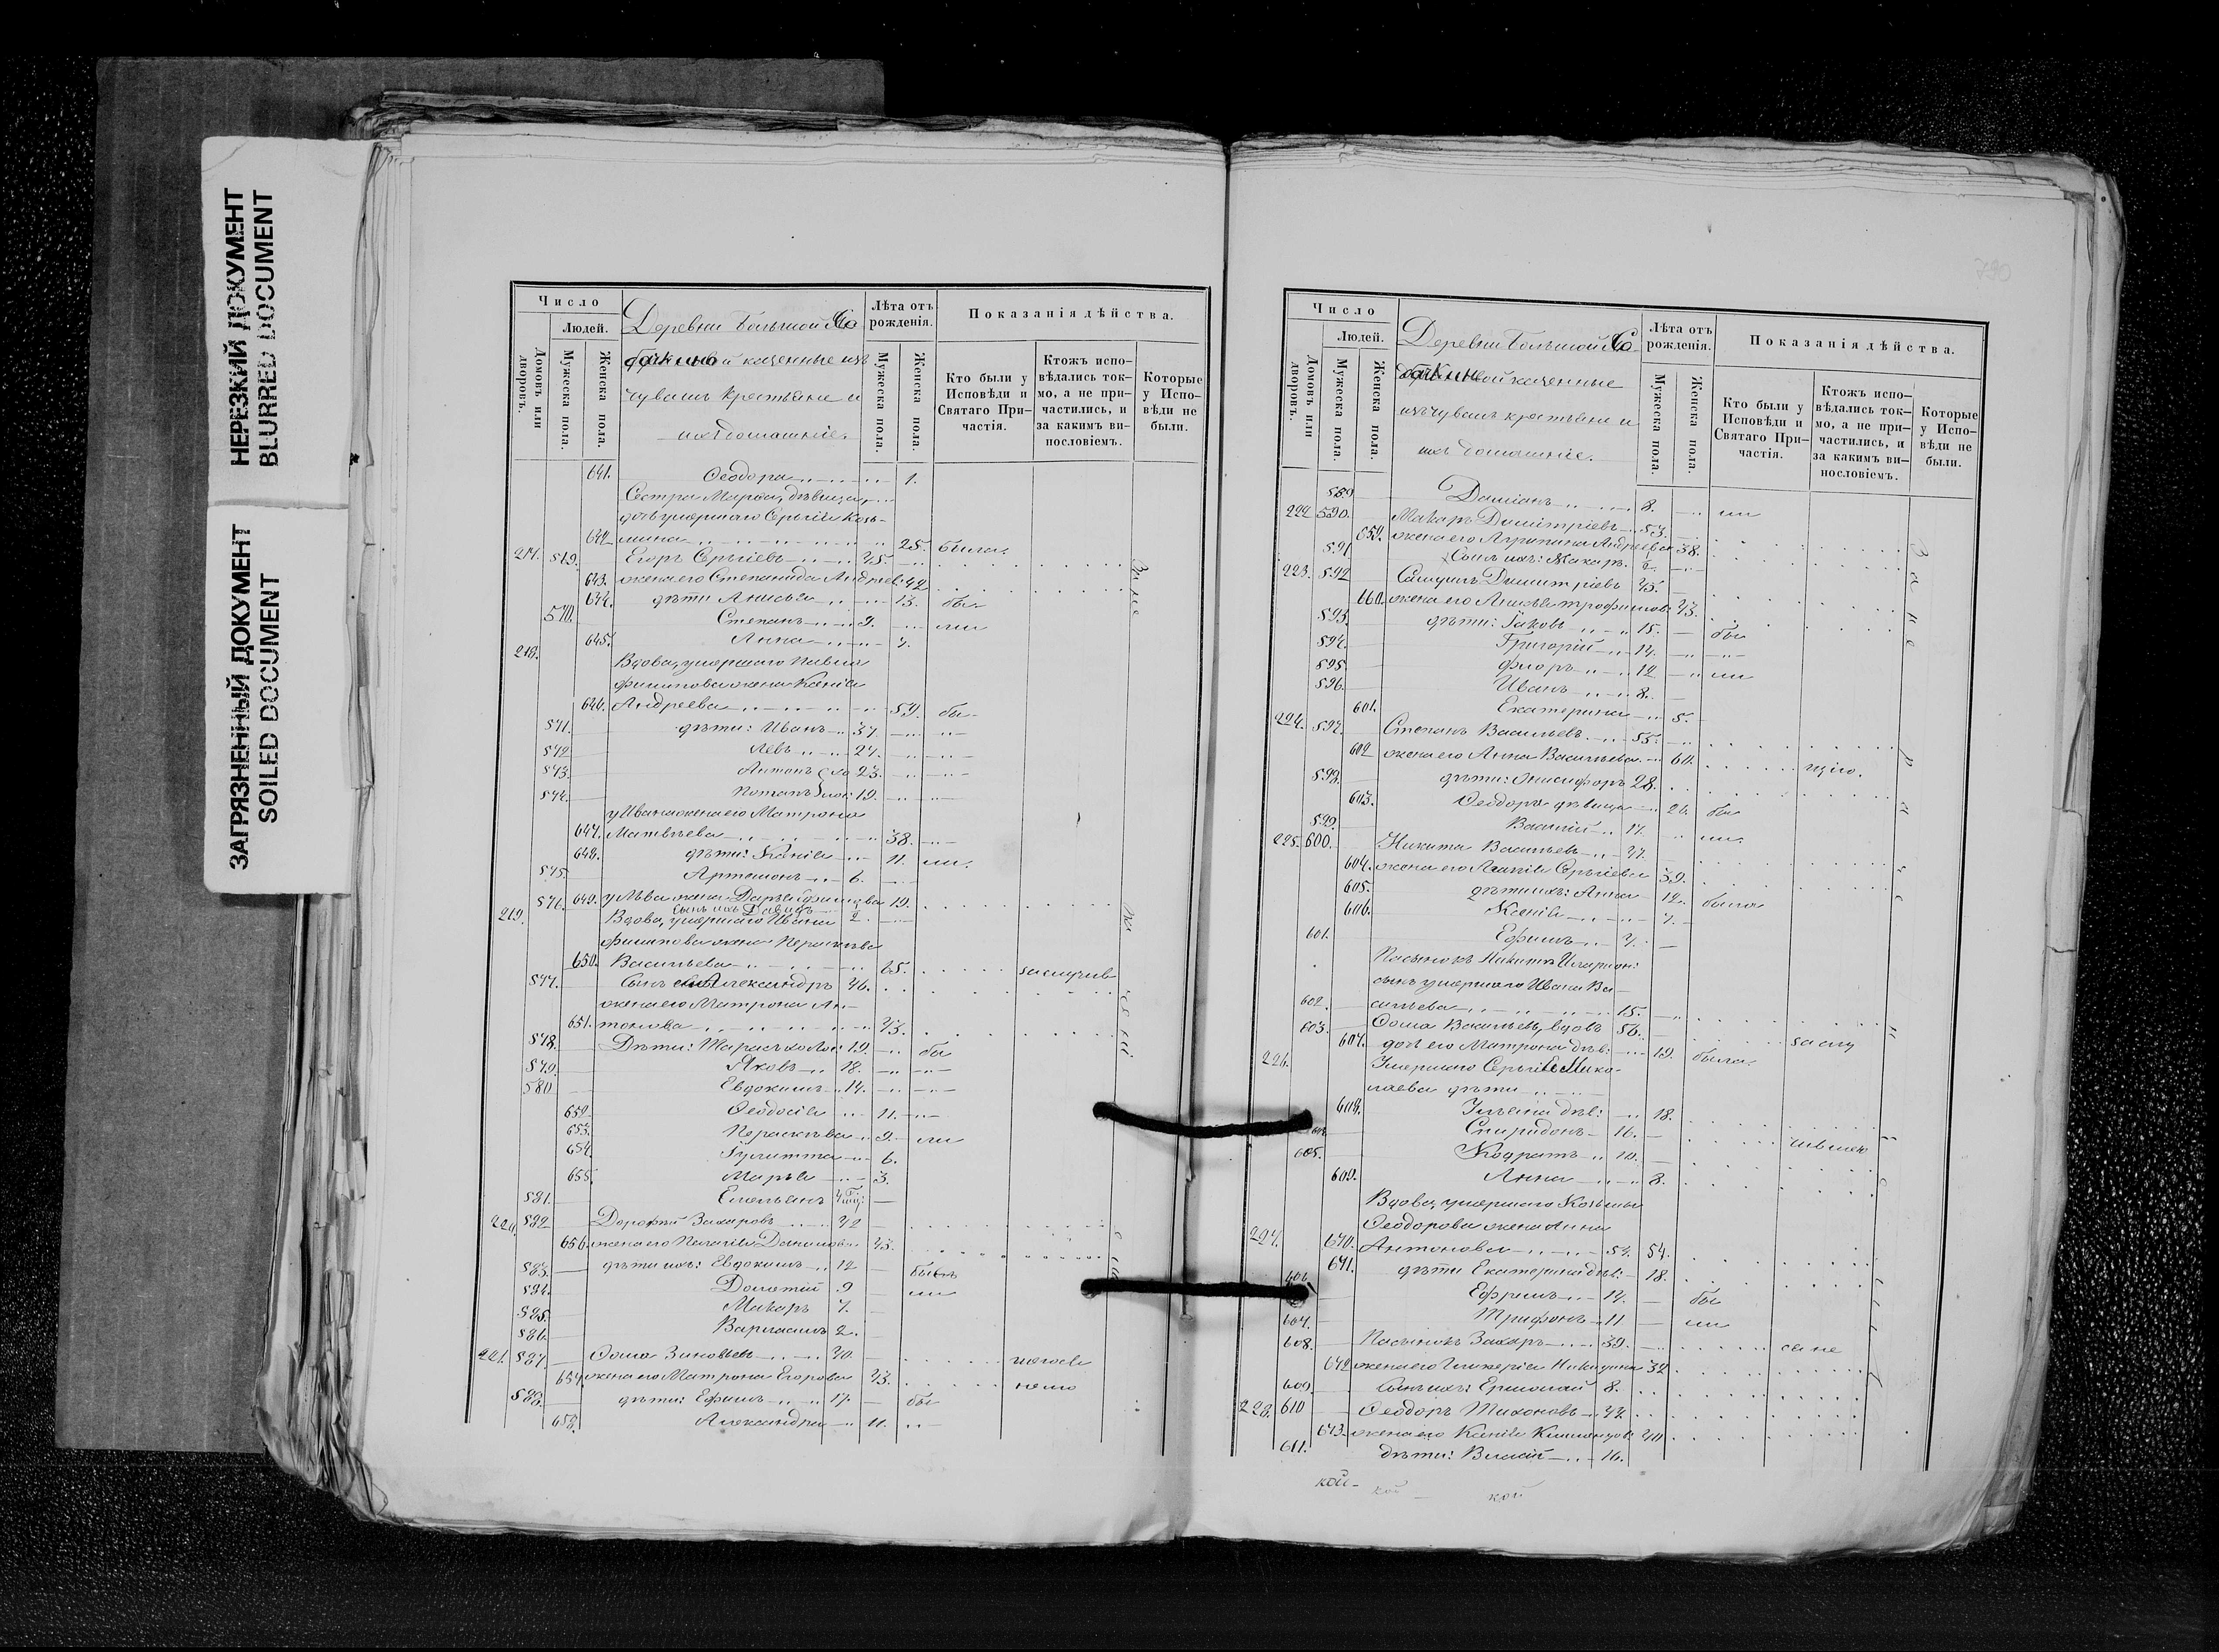 НЕРЕЗКИЙ ДОКУМЕНТ
BLURRED DOCUMENT
ЗАГРЯЗНЕННЫЙ ДОКУМЕНТ
SOILED DOCUMENT
Число
Людей.
Домовъ или дворовъ.
Мужеска пола.
Женска пола.
Деревни Большой
казенные изъ
чувашъ крестьяне и
ихъ домашніе.
Лѣта отъ рожденія.
Мужеска пола.
Женска пола.
Показанія дѣйства.
Кто были у Исповѣди и Святаго При-частія.
Ктожъ испо-вѣдались ток-мо, а не при-частились, и за какимъ ви-нословіемъ.
Которые у Испо-вѣди не были.
641. Ѳеодора 1.
Сестра Марѳа, дѣвица,
дочь умершаго Сергія Козь-
642 мина 25. была.
217. 569. Егоръ Сергіевъ 45.
643. жена его Степанида Андреев: 42
644. дѣти Анисья 13. бы
570. Степанъ 9. ли
645. Анна 7.
218. Вдова, умершаго Павла
Филипова жена Ксенія
646. Андреева 59. бы
571. дѣти: Иванъ 37.
572 Левъ 27.
573. Антонъ хо 23.
574. Потапъ лос: 19.
у Ивана жена его Матрона
647. Матвѣева 38.
648. дѣти: Ксенія 11. ли.
575. Артемонъ 6.
649. у Льва жена Дарья Филипова 19.
576. сынъ ихъ Давидъ 2.
219. Вдова, умершаго Ивана
Филипова жена Пераскева
650. Васильева 65.
577. Сынъ Александръ 46.
жена его Матрона Ан-
651. тонова 43.
578. Дѣти: Тарасъ холос: 19. бы
579. Яковъ 18.
580 Евдокимъ 14.
652. Ѳеодосія 11.
653. Пераскева 9. ли
654. Іулитта 6.
655. Марья 3.
581. Емельянъ
220. 582 Дорофей Захаровъ 42
656. жена его Пелагія 43.
583. дѣти ихъ: Евдокимъ 12 бы
584. Дометій 9 ли
585. Макаръ 7.
586. Варлаамъ 2.
221. 587. Ѳома Зиновьевъ 40.
657. жена его Матрона Егорова 43.
588. дѣти: Ефимъ 17. бы
658. Александра 11.
790
Число
Людей.
Домовъ или дворовъ.
Мужеска пола.
Женска пола.
Деревни Большой
казенные
изъ чувашъ крестьяне и
ихъ домашніе.
Лѣта отъ рожденія.
Мужеска пола.
Женска пола.
Показанія дѣйства.
Кто были у Исповѣди и Святаго При-частія.
Ктожъ испо-вѣдались ток-мо, а не при-частились, и за какимъ ви-нословіемъ.
Которые у Испо-вѣди не были.
589 Даміанъ 8. ли
222 590. Макаръ Димитріевъ 53.
659. жена его Агрипина Андреева 38.
591. Сынъ ихъ: Макаръ 2.
223. 592 Самуилъ Димитріевъ 45.
660. жена его Анисья Трофимов: 43.
593. дѣти: Іаковъ 15. бы
594. Григорій 14.
595. Флоръ 12 ли
596. Иванъ 8.
601. Екатерина 5.
224. 597. Степанъ Васильевъ 55.
602 жена его Анна Васильева 60.
598. дѣти: Онисифоръ 28.
603. Ѳеодора дѣвица 26. бы
599. Василій 17. ли.
225. 600. Никита Васильевъ 47.
604. жена его Сергіева 39.
605. дѣти ихъ: Анна 12. была
606. Ксенія 7.
601. Ефимъ
Пасынокъ Никиты Иларіон:
сынъ умершаго Ивана Ва-
602. сильева 15.
603. Ѳома Васильевъ, вдовъ 56.
607. дочь его Матрона дѣв: 19. была
226. Умершаго Сергія Нико-
лаева дѣти
608. дѣв: 18.
604. Спиридонъ 16.
605. Кодратъ 10.
609. Анна 8.
Вдова, умершаго Козьмы
Ѳеодорова жена Анна
227. 670. Антонова 54.
671. дѣти Екатерина дѣв: 18.
606. Ефремъ 14. бы
607. Трифонъ 11 ли
608. Пасынокъ Захаръ 39.
672 жена его Гликерія Никитина 32
609. Сынъ ихъ: Ермолай 8.
228. 610 Ѳеодоръ Тихоновъ 44.
673. жена его Ксенія 40
611. дѣти: Василій 16.
кой-
кой
кой